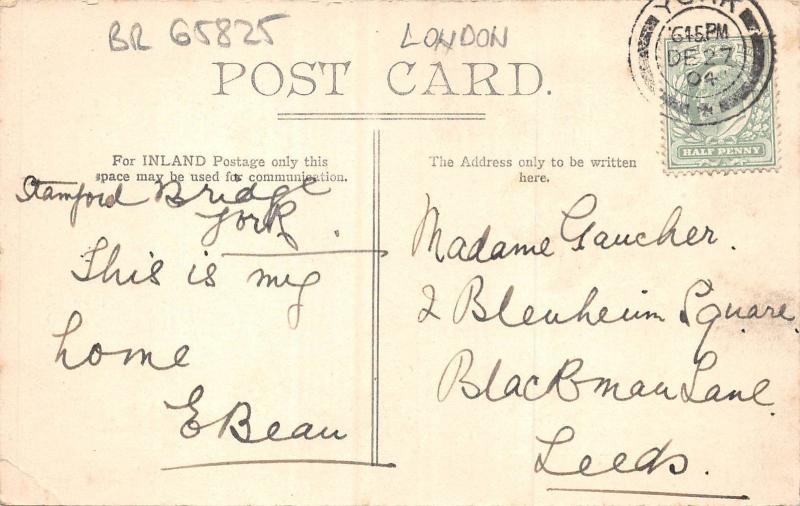 BR 65825 LONDON
YORK
6 15 PM
DE 27
04
HALF PENNY
POST CARD.
For INLAND Postage only this
space may be used for communication.
Stamford Bridge
York.
This is my
home
E Beau
The Address only to be written
here.
Madame Gaucher.
2 Blenheim Square
Blackman Lane
Leeds.